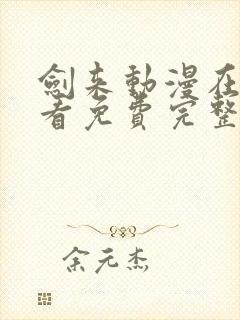 劍来動漫在
看免費完整
余元杰